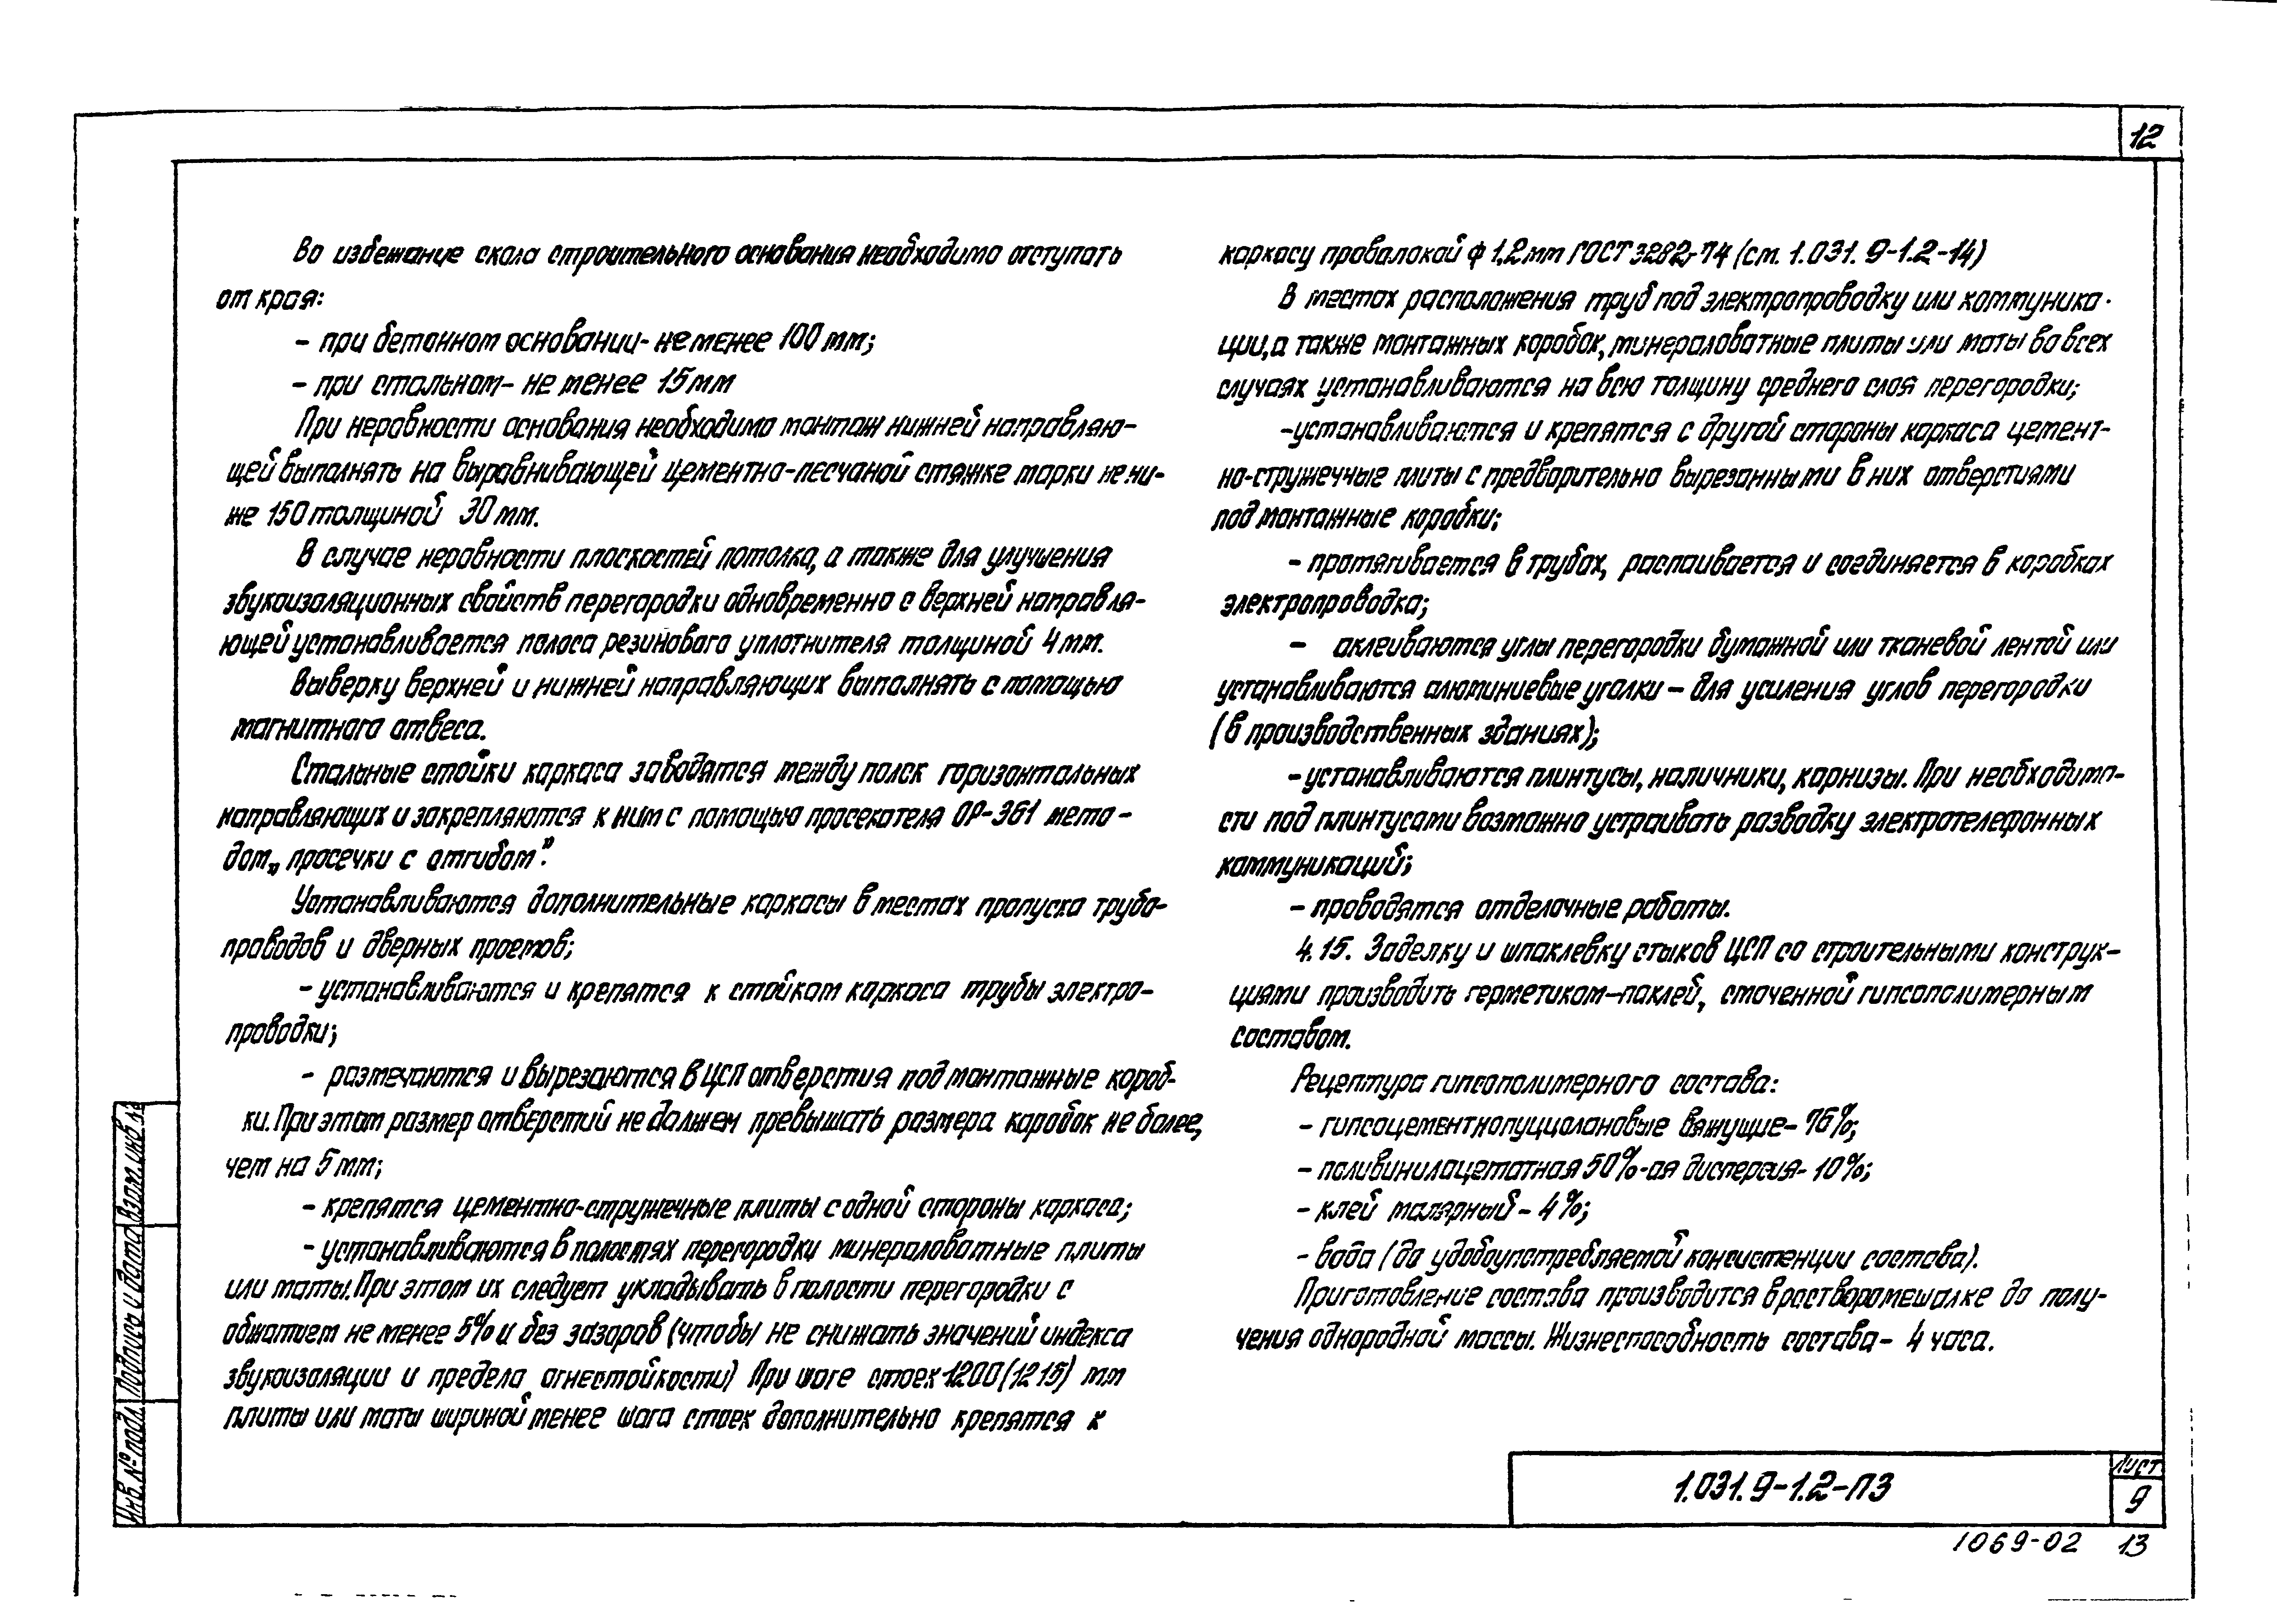 12
Во избежание скола строительного основания необходимо отступать
от края:
- при бетонном основании- не менее 100 мм;
- при стальном- не менее 15 мм
При неровности основания необходимо монтаж нижней направляю-
щей выполнять на выравнивающей цементно-песчаной стяжке марки не ни-
же 150 толщиной 30 мм.
В случае неровности плоскостей потолка, а также для улучшения
звукоизоляционных свойств перегородки одновременно с верхней направля-
ющей устанавливается полоса резинового уплотнителя толщиной 4 мм.
Выверку верхней и нижней направляющих выполнять с помощью
магнитного отвеса.
Стальные стойки каркаса заводятся между полок горизонтальных
направляющих и закрепляются к ним с помощью просекателя ОР-361 мето-
дом „просечки с отгибом".
Устанавливаются дополнительные каркасы в местах пропуска трубо-
проводов и дверных проемов;
- устанавливаются и крепятся к стойкам каркаса трубы электро-
проводки;
- размечаются и вырезаются в ЦСП отверстия под монтажные короб-
ки. При этом размер отверстий не должен превышать размера коробок не более,
чем на 5 мм;
- крепятся цементно-стружечные плиты с одной стороны каркаса;
- устанавливаются в полостях перегородки минераловатные плиты
или маты. При этом их следует укладывать в полости перегородки с
обжатием не менее 5% и без зазоров (чтобы не снижать значений индекса
звукоизоляции и предела огнестойкости) При шаге стоек 1200 (1215) мм
плиты или маты шириной менее шага стоек дополнительно крепятся к
каркасу проволокой ф 1,2 мм ГОСТ 3282-74 (см. 1.031.9-1.2-14)
В местах расположения труб под электропроводку или коммуника-
ции, а также монтажных коробок, минераловатные плиты или маты во всех
случаях устанавливаются на всю толщину среднего слоя перегородки;
-устанавливаются и крепятся с другой стороны каркаса цемент-
но-стружечные плиты с предварительно вырезанными в них отверстиями
под монтажные коробки;
- протягивается в трубах, распаивается и соединяется в коробках
электропроводка;
- оклеиваются углы перегородки бумажной или тканевой лентой или
устанавливаются алюминиевые уголки - для усиления углов перегородки
(в производственных зданиях);
-устанавливаются плинтусы, наличники, карнизы. При необходимо-
сти под плинтусами возможно устраивать разводку электротелефонных
коммуникаций;
- проводятся отделочные работы.
4.15. Заделку и шпаклевку стыков ЦСП со строительными конструк-
циями производить герметиком-паклей, смоченной гипсополимерным
составом.
Рецептура гипсополимерного состава:
- гипсоцементнопуццолановые вяжущие- 76%;
- поливинилацетатная 50%-ая дисперсия- 10%;
- клей малярный - 4%;
- вода (до удобоупотребляемой консистенции состава).
Приготовление состава производится в растворомешалке до полу-
чения однородной массы. Жизнеспособность состава- 4 часа.
Инв. № подл.
Подпись и дата
Взам. инв. №
1.031.9-1.2-ПЗ
Лист
9
1069-02 13